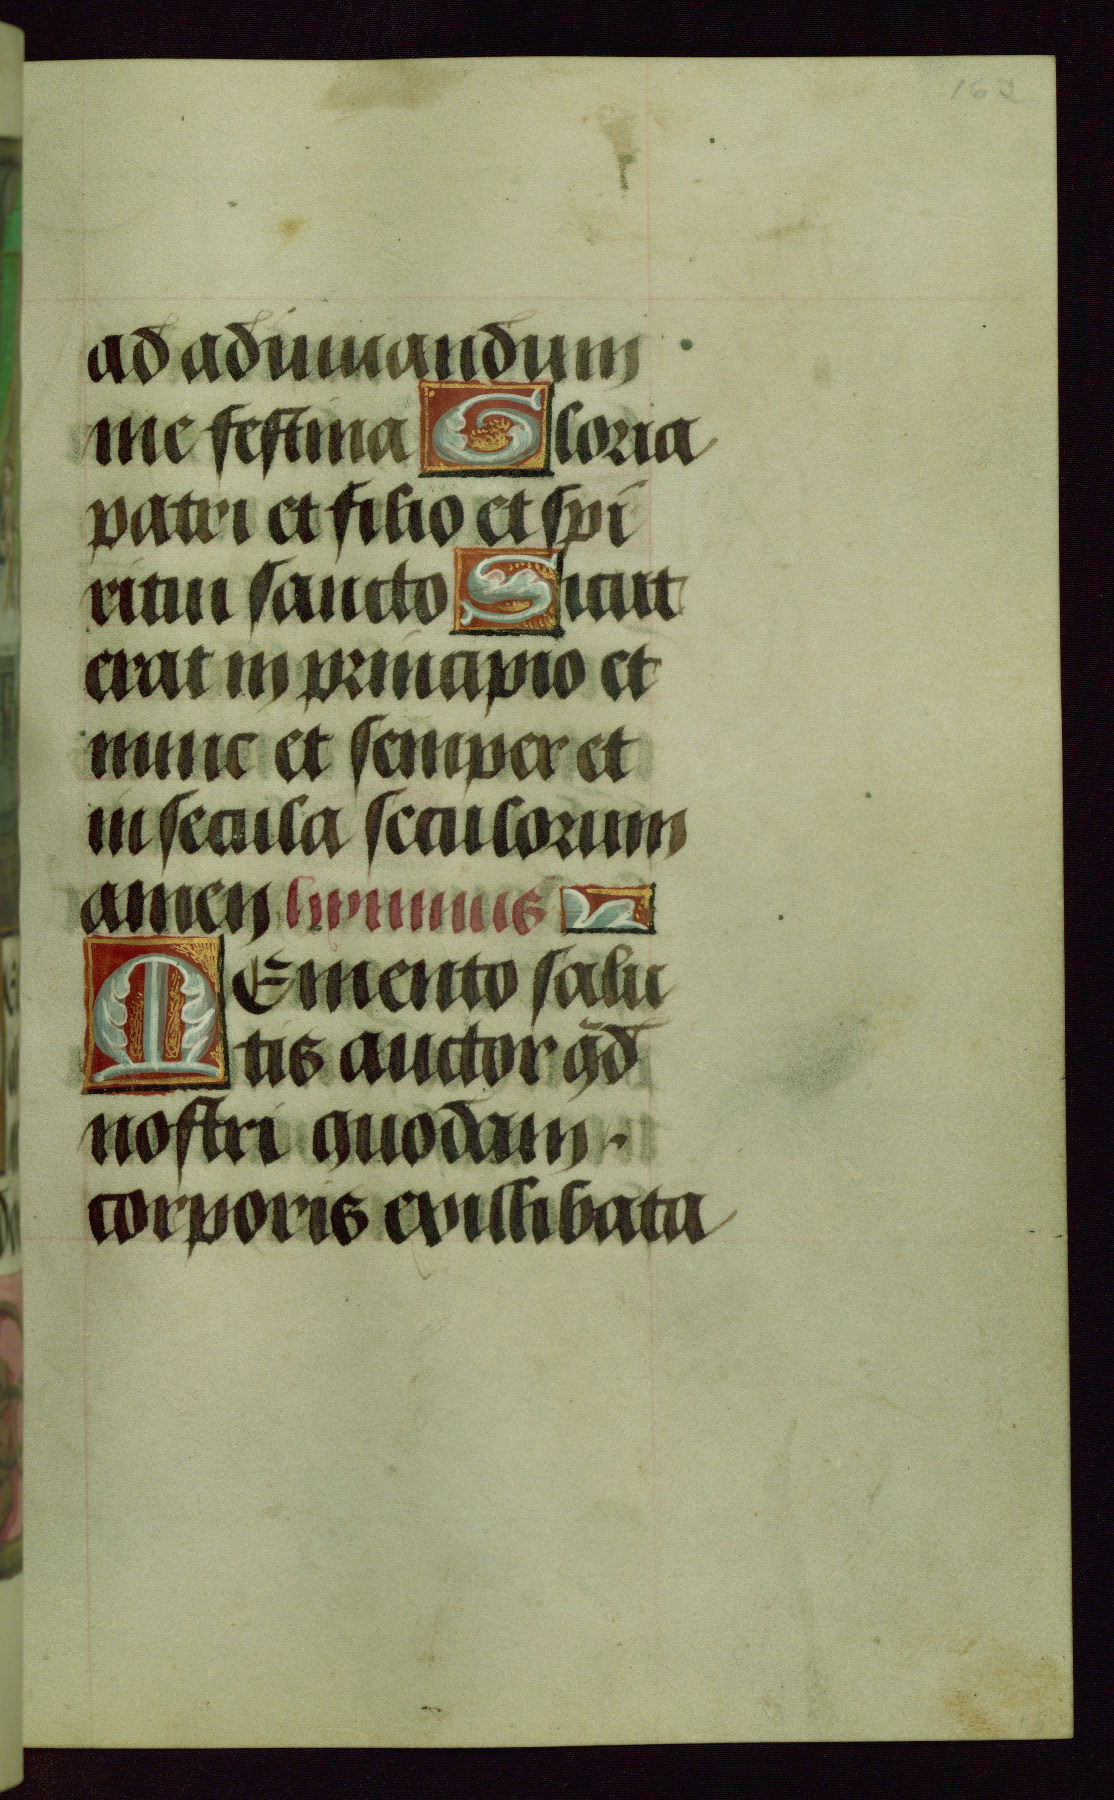 162
ad adiuuandum
me festina Gloria
patri et filio et spi
ritui sancto Sicut
erat in principio et
nunc et semper et
in secula seculorum
amen hymnus
MEmento salu
tis auctor qd̃
nostri quodam
corporis exillibata